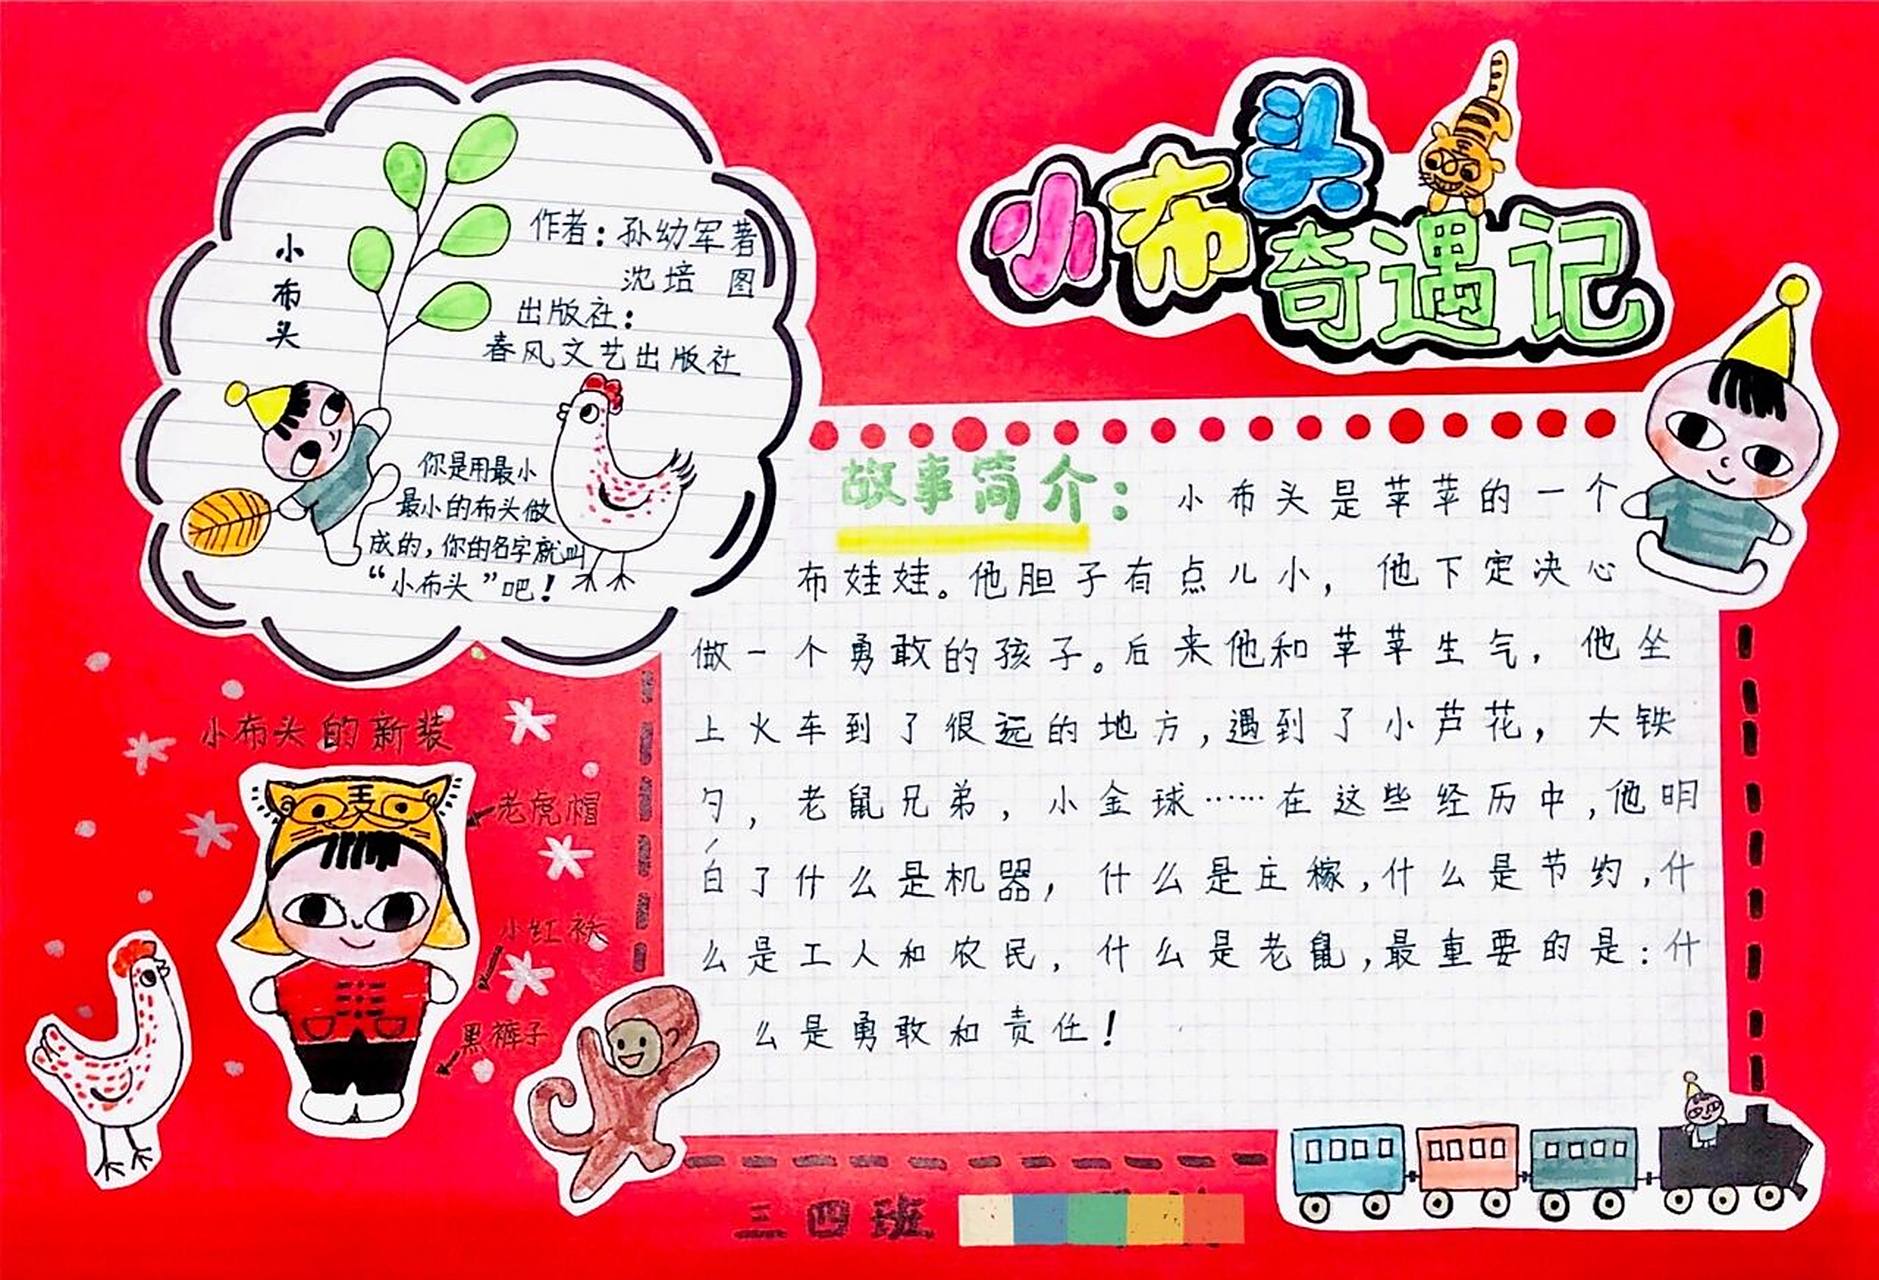 小布头奇遇记
小布头
作者：孙幼军著
沈培 图
出版社：
春风文艺出版社
你是用最小
最小的布头做
成的，你的名字就叫
“小布头”吧！
故事简介：小布头是苹苹的一个
布娃娃。他胆子有点儿小，他下定决心
做一个勇敢的孩子。后来他和苹苹生气，他坐
上火车到了很远的地方，遇到了小芦花，大铁
勺，老鼠兄弟，小金球……在这些经历中，他明
白了什么是机器，什么是庄稼，什么是节约，什
么是工人和农民，什么是老鼠，最重要的是：什
么是勇敢和责任！
小布头的新装
老虎帽
小红袄
黑裤子
三四班